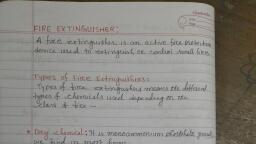 FIRE EXTINGUISHER:
A fire extinguisher is an active fire protection
device used to extinguish or control small fires
Types of Fire Extinguishers:
Types of fire extinguishers means the different
types of chemicals used depending on the
class of fire -
* Dry chemical: It is monoammonium phosphate